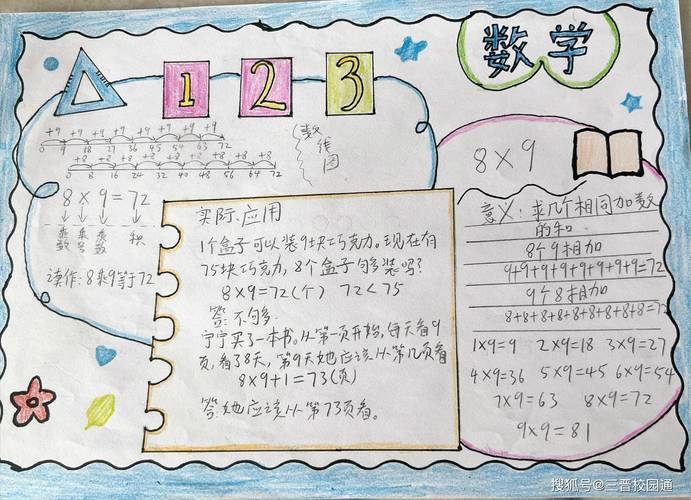 数学
1 2 3
+9 +9 +9 +9 +9 +9 +9 +9
0 9 18 27 36 45 54 63 72
+8 +8 +8 +8 +8 +8 +8 +8 +8
0 8 16 24 32 40 48 56 64 72
数线图
8×9=72
乘数 乘号 乘数 积
读作:8乘9等于72
实际应用
1个盒子可以装9块巧克力。现在有
75块巧克力,8个盒子够装吗?
8×9=72(个) 72<75
答:不够
宁宁买了一本书。从第一页开始,每天看9
页,看了8天,第9天她应该从第几页看
8×9+1=73(页)
答:她应该从第73页看。
8×9
意义:求几个相同加数
的和
8个9相加
9+9+9+9+9+9+9+9=72
9个8相加
8+8+8+8+8+8+8+8+8=72
1×9=9 2×9=18 3×9=27
4×9=36 5×9=45 6×9=54
7×9=63 8×9=72
9×9=81
搜狐号@三晋校园通